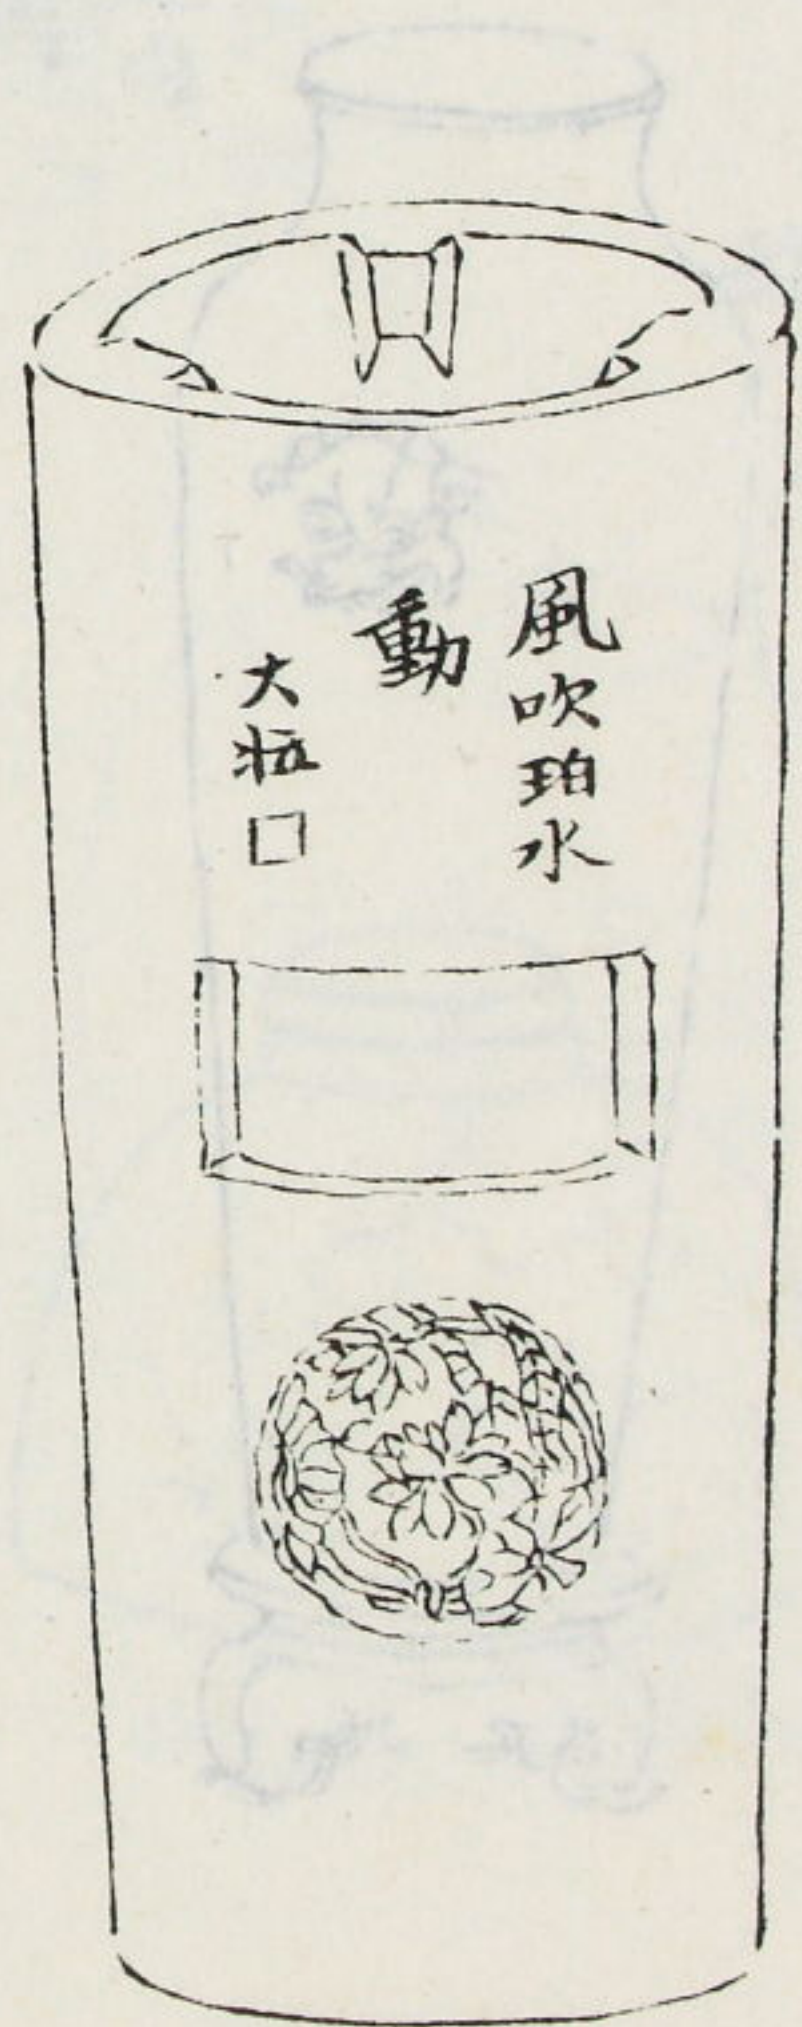 風吹珀水
動
大粧口